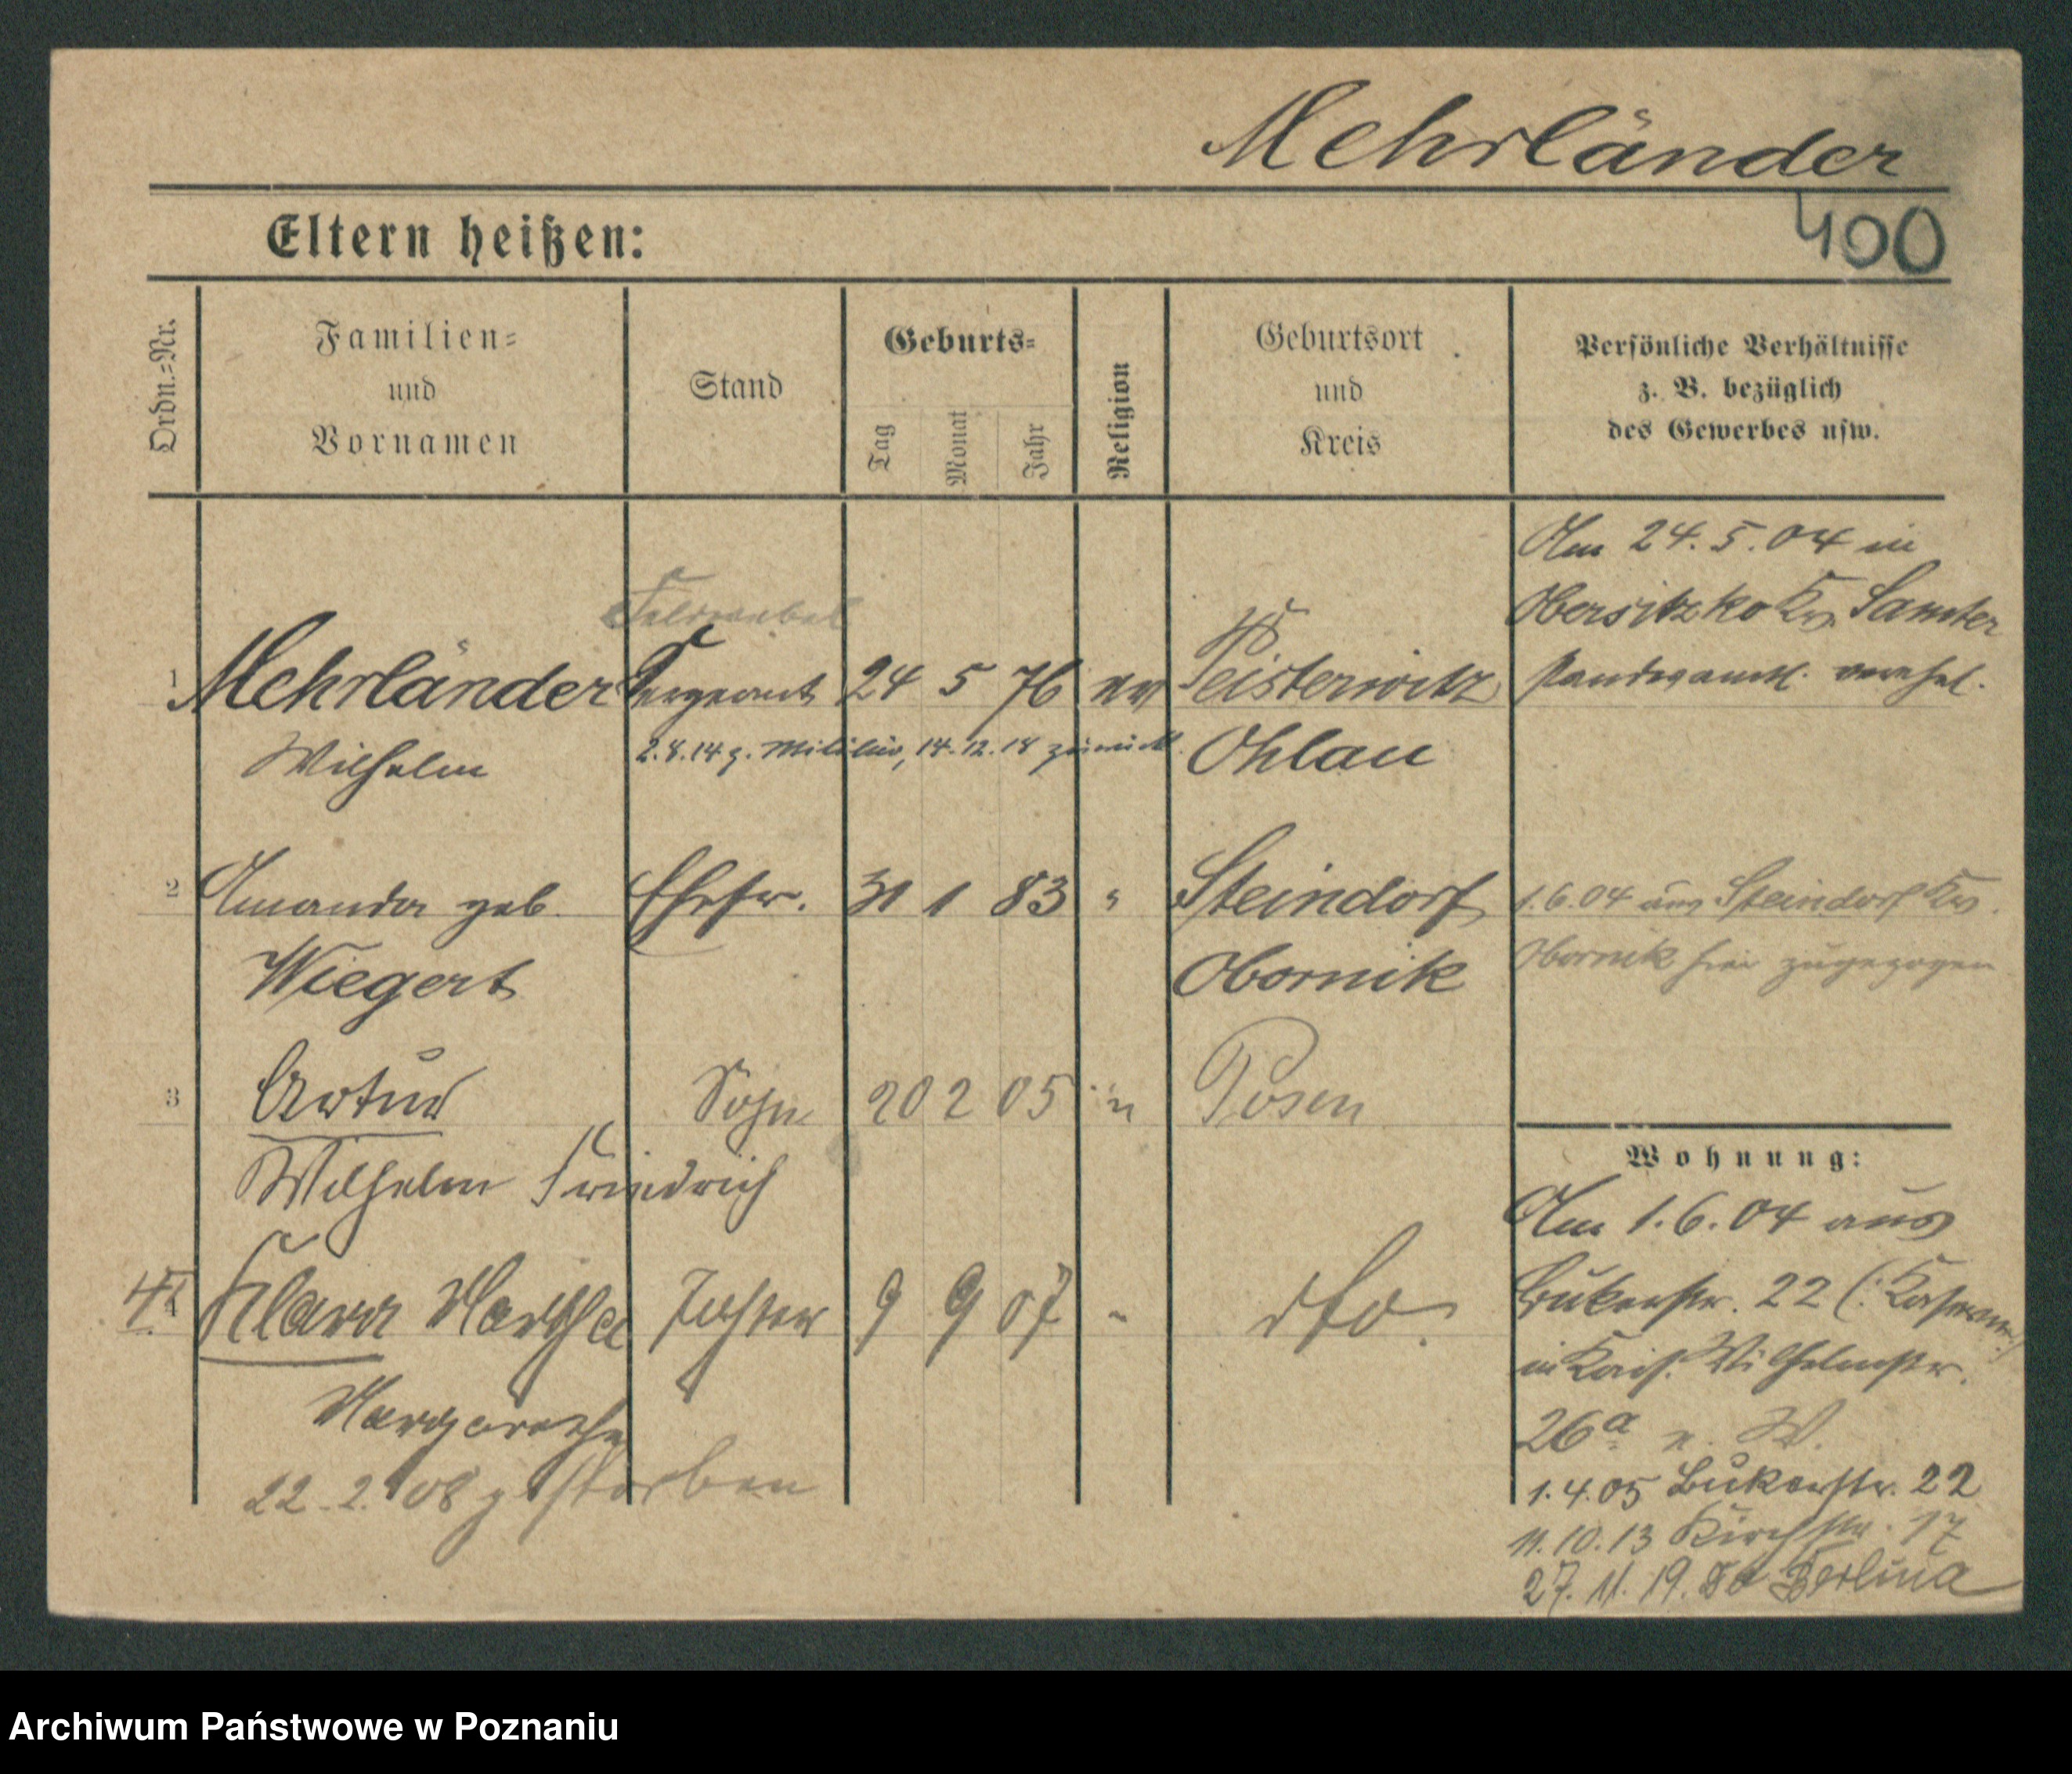 Mehrländer
400
Eltern heißen:
Ordn.=Nr.
Familien=
und
Vornamen
Stand
Geburts=
Tag
Monat
Jahr
Religion
Geburtsort
und
Kreis
Persönliche Verhältnisse
z. B. bezüglich
des Gewerbes usw.
Am 24.5.04 in
Obersitzko Kr. Samter
standesamtl. verehel.
Feldwebel
1 Mehrländer Sergeant 24 5 76 ev Peisterwitz
Wilhelm 2.8.14 z. Militär, 14.12.18 zurück. Ohlau
2 Amanda geb. Ehefr. 31 1 83 " Steindorf 1.6.04 aus Steindorf Kr.
Wiegert Obornik Obornik hier zugezogen
3 Artur Sohn 20 2 05 " Posen
Wilhelm Friedrich
Wohnung:
Am 1.6.04 aus
4 Klara Martha Tochter 9 9 07 " dto. Bukerstr. 22 (: Kaserne :)
in Kais. Wilhelmstr.
Margarethe 26a n. W.
22.2.08 gestorben 1.4.05 Bukerstr. 22
11.10.13 Kirchstr. 17
27.11.19. Do Berlina
Archiwum Państwowe w Poznaniu